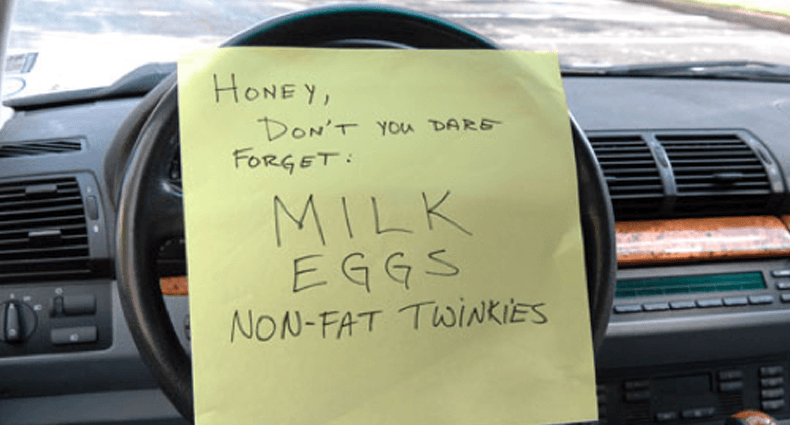 HONEY,
DON'T YOU DARE
FORGET:
MILK
EGGS
NON-FAT TWINKIES